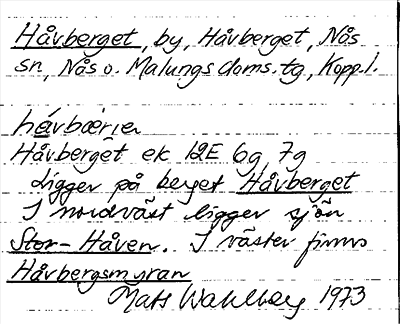 Håvberget, by, Håvberget, Nås
sn, Nås o. Malungs doms. tg, Kopp. l.
hávbæ̀rjen
Håvberget ek 12E 6g, 7g
Ligger på berget Håvberget
I nordväst ligger sjön
Stor-Håven. I väster finns
Håvbergsmyran
Mats Wahlberg 1973